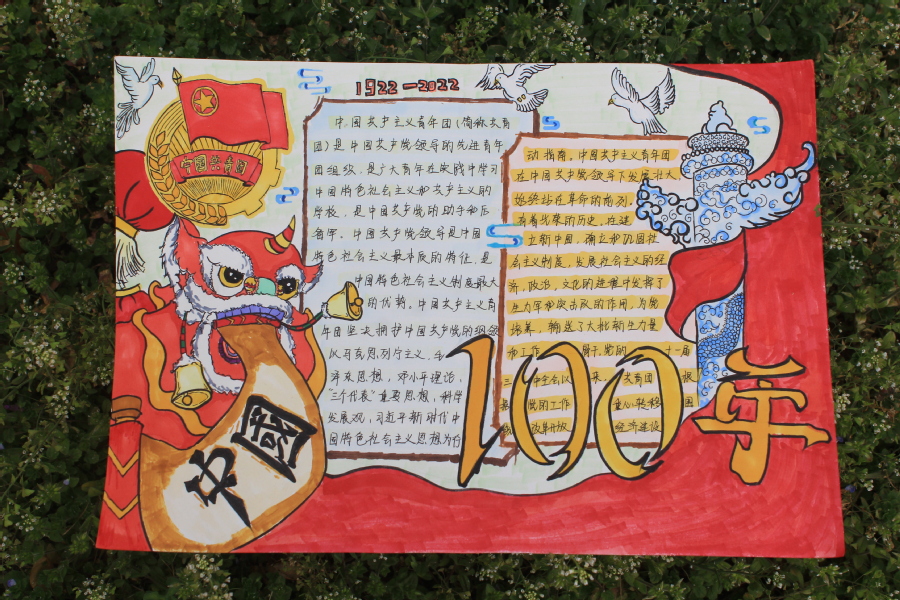 1922—2022
中国共青团
中国共产主义青年团(简称共青
团)是中国共产党领导的先进青年
团组织,是广大青年在实践中学习
中国特色社会主义和共产主义的
学校,是中国共产党的助手和后
备军。中国共产党领导是中国
特色社会主义最本质的特征,是
中国特色社会主义制度最大
的优势。中国共产主义青
年团坚决拥护中国共产党的纲领
以马克思列宁主义、毛
泽东思想,邓小平理论,
"三个代表"重要思想,科学
发展观,习近平新时代中
国特色社会主义思想为行
动指南。中国共产主义青年团
在中国共产党领导下发展壮大
始终站在革命的前列,
有着光荣的历史。在建
立新中国,确立和巩固社
会主义制度,发展社会主义的经
济,政治,文化的进程中发挥了
生力军和突击队的作用,为党
培养、输送了大批新生力量
和工作 党的 十一届
三 中全会以来,共青团 根
据 党的工作 重心转移
改革开放 经济建设
100年
中国